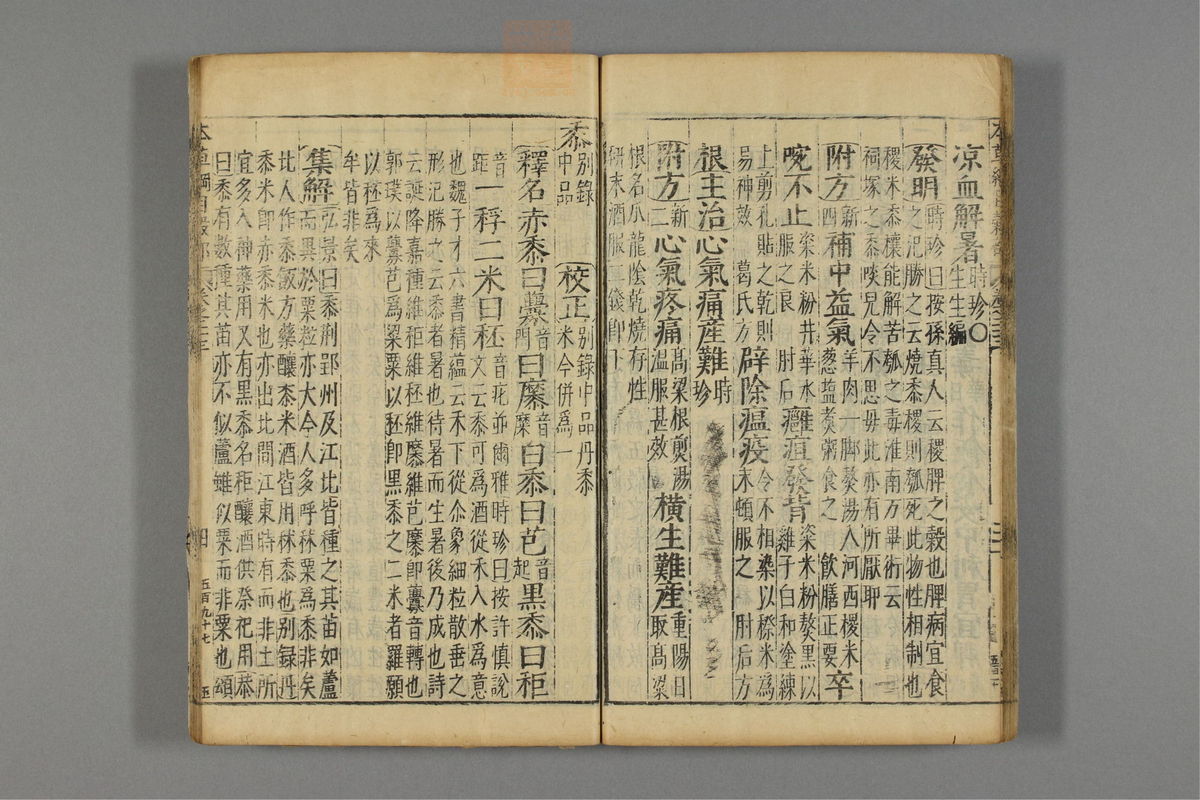 凉血解暑時珍○生生編
發明時珍曰按孫真人云稷脾之穀也脾病宜食
之氾勝之云燒黍稷則瓠死此物性相制也
稷米黍穰能解苦瓠之毒淮南万畢術云
祠塚之黍啖兒令不思母此亦有所厭耶
附方新四補中益氣羊肉一脚熬湯入河西稷米葱塩煮粥食之飲膳正要卒
啘不止粢米粉井華水服之良肘后癰疽發背粢米粉熬黑以雞子白和塗練
上剪孔貼之乾則易神效葛氏方辟除瘟疫令不相染以穄米爲末頓服之肘后方
根主治心氣痛産難時珍
附方新二心氣疼痛高粱根煎湯温服甚效橫生難産重陽日取高粱
根名爪龍陰乾燒存性
研末酒服二錢卽下
黍別錄中品校正別錄中品丹黍米今併爲一
釋名赤黍曰虋音門曰穈音糜白黍曰芑音起黑黍曰秬
音距一稃二米曰秠音疕並爾雅時珍曰按許慎說文云黍可爲酒從禾入水爲意
也魏子才六書精蘊云禾下從氽象細粒散垂之
形氾勝之云黍者暑也待暑而生暑後乃成也詩
云誕降嘉種維秬維秠維穈維芑穈卽虋音轉也
郭璞以虋芑爲粱粟以秠卽黑黍之二米者羅願
以秠爲來
牟皆非矣
集解弘景曰黍荆郢州及江北皆種之其苗如蘆
而異於粟粒亦大今人多呼秫粟爲黍非矣
北人作黍飯方藥釀黍米酒皆用秫黍也別録丹
黍米卽赤黍米也亦出北間江東時有而非土所
宜多入神藥用又有黑黍名秬釀酒供祭祀用恭
曰黍有數種其苗亦不似蘆雖似粟而非粟也頌
四
五百九十七